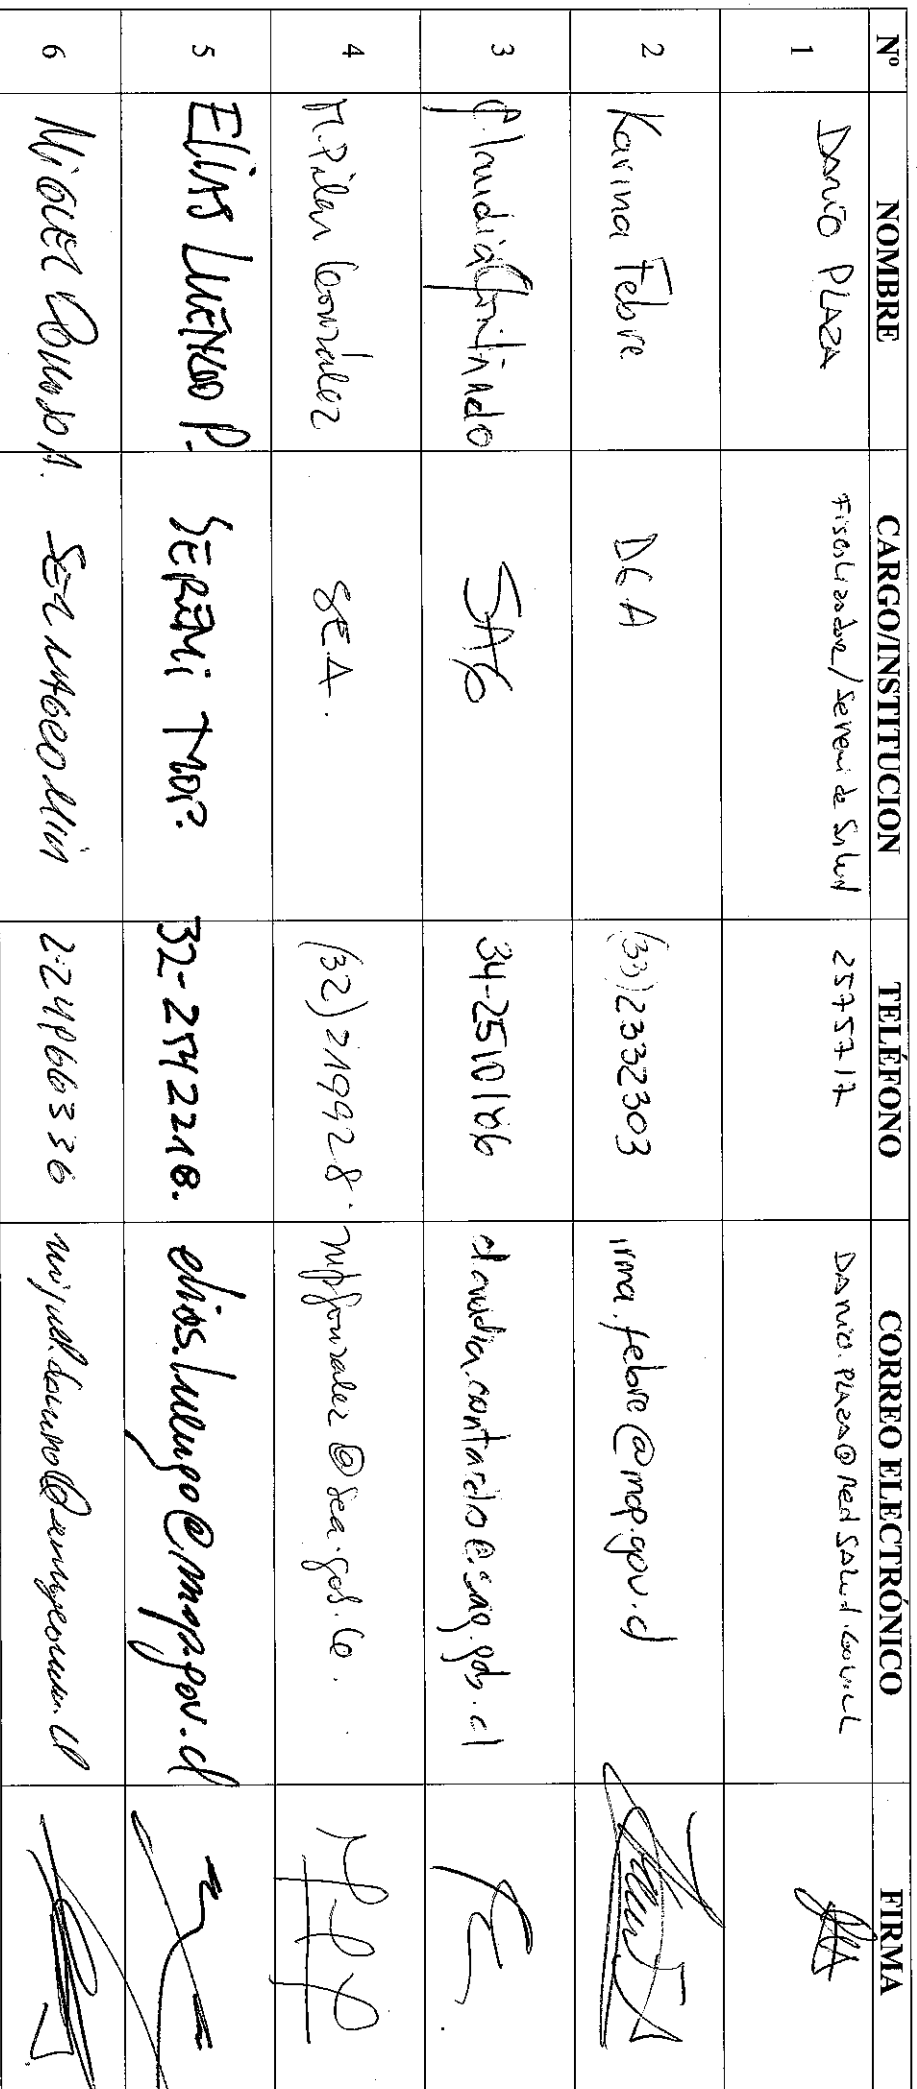 Nº NOMBRE CARGO/INSTITUCION TELÉFONO CORREO ELECTRÓNICO FIRMA
1 DARÍO PLAZA Fiscalizador/Seremi de Salud 2575717 DARIO.PLAZA@redSALUD.GOV.CL
2 Karina Febre DGA (33)2332303 irma.febre@mop.gov.cl
3 Claudia Contardo SAG 34-2510186 claudia.contardo@sag.gob.cl
4 M. Pilar González SEA. (32)219928. mpgonzalez@sea.gob.cl.
5 ELIAS LUENGO P. SEREMI MOP. 32-2542218. elias.luengo@mop.gov.cl
6 MIGUEL A. 2-24866336